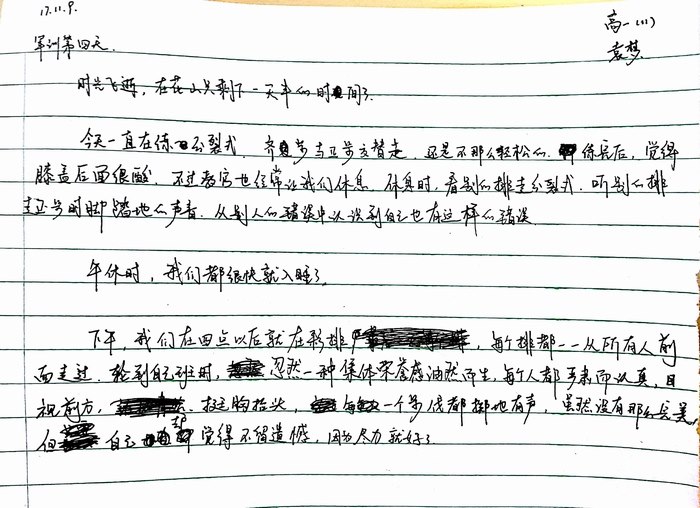 17.11.9.
高一(2)
军训第四天.
袁梦.
时光飞逝，在花山只剩下一天半的时间了.
今天一直在练分裂式. 齐步与正步交替走，还是不那么轻松的. 练完后，觉得
膝盖后面很酸. 不过教官也经常让我们休息. 休息时，看别的排走分裂式. 听别的排
走正步时脚踏地的声音. 从别人的错误中认识到自己也有这样的错误.
午休时，我们都很快就入睡了.
下午，我们在四点以后就在彩排，每个排都一一从所有人前
面走过. 轮到自己时，忽然一种集体荣誉感油然而生，每个人都严肃而认真，目
视前方，挺胸抬头，一个步伐都掷地有声，虽然没有那么完美，
但自己却觉得不留遗憾，因为尽力就好了.